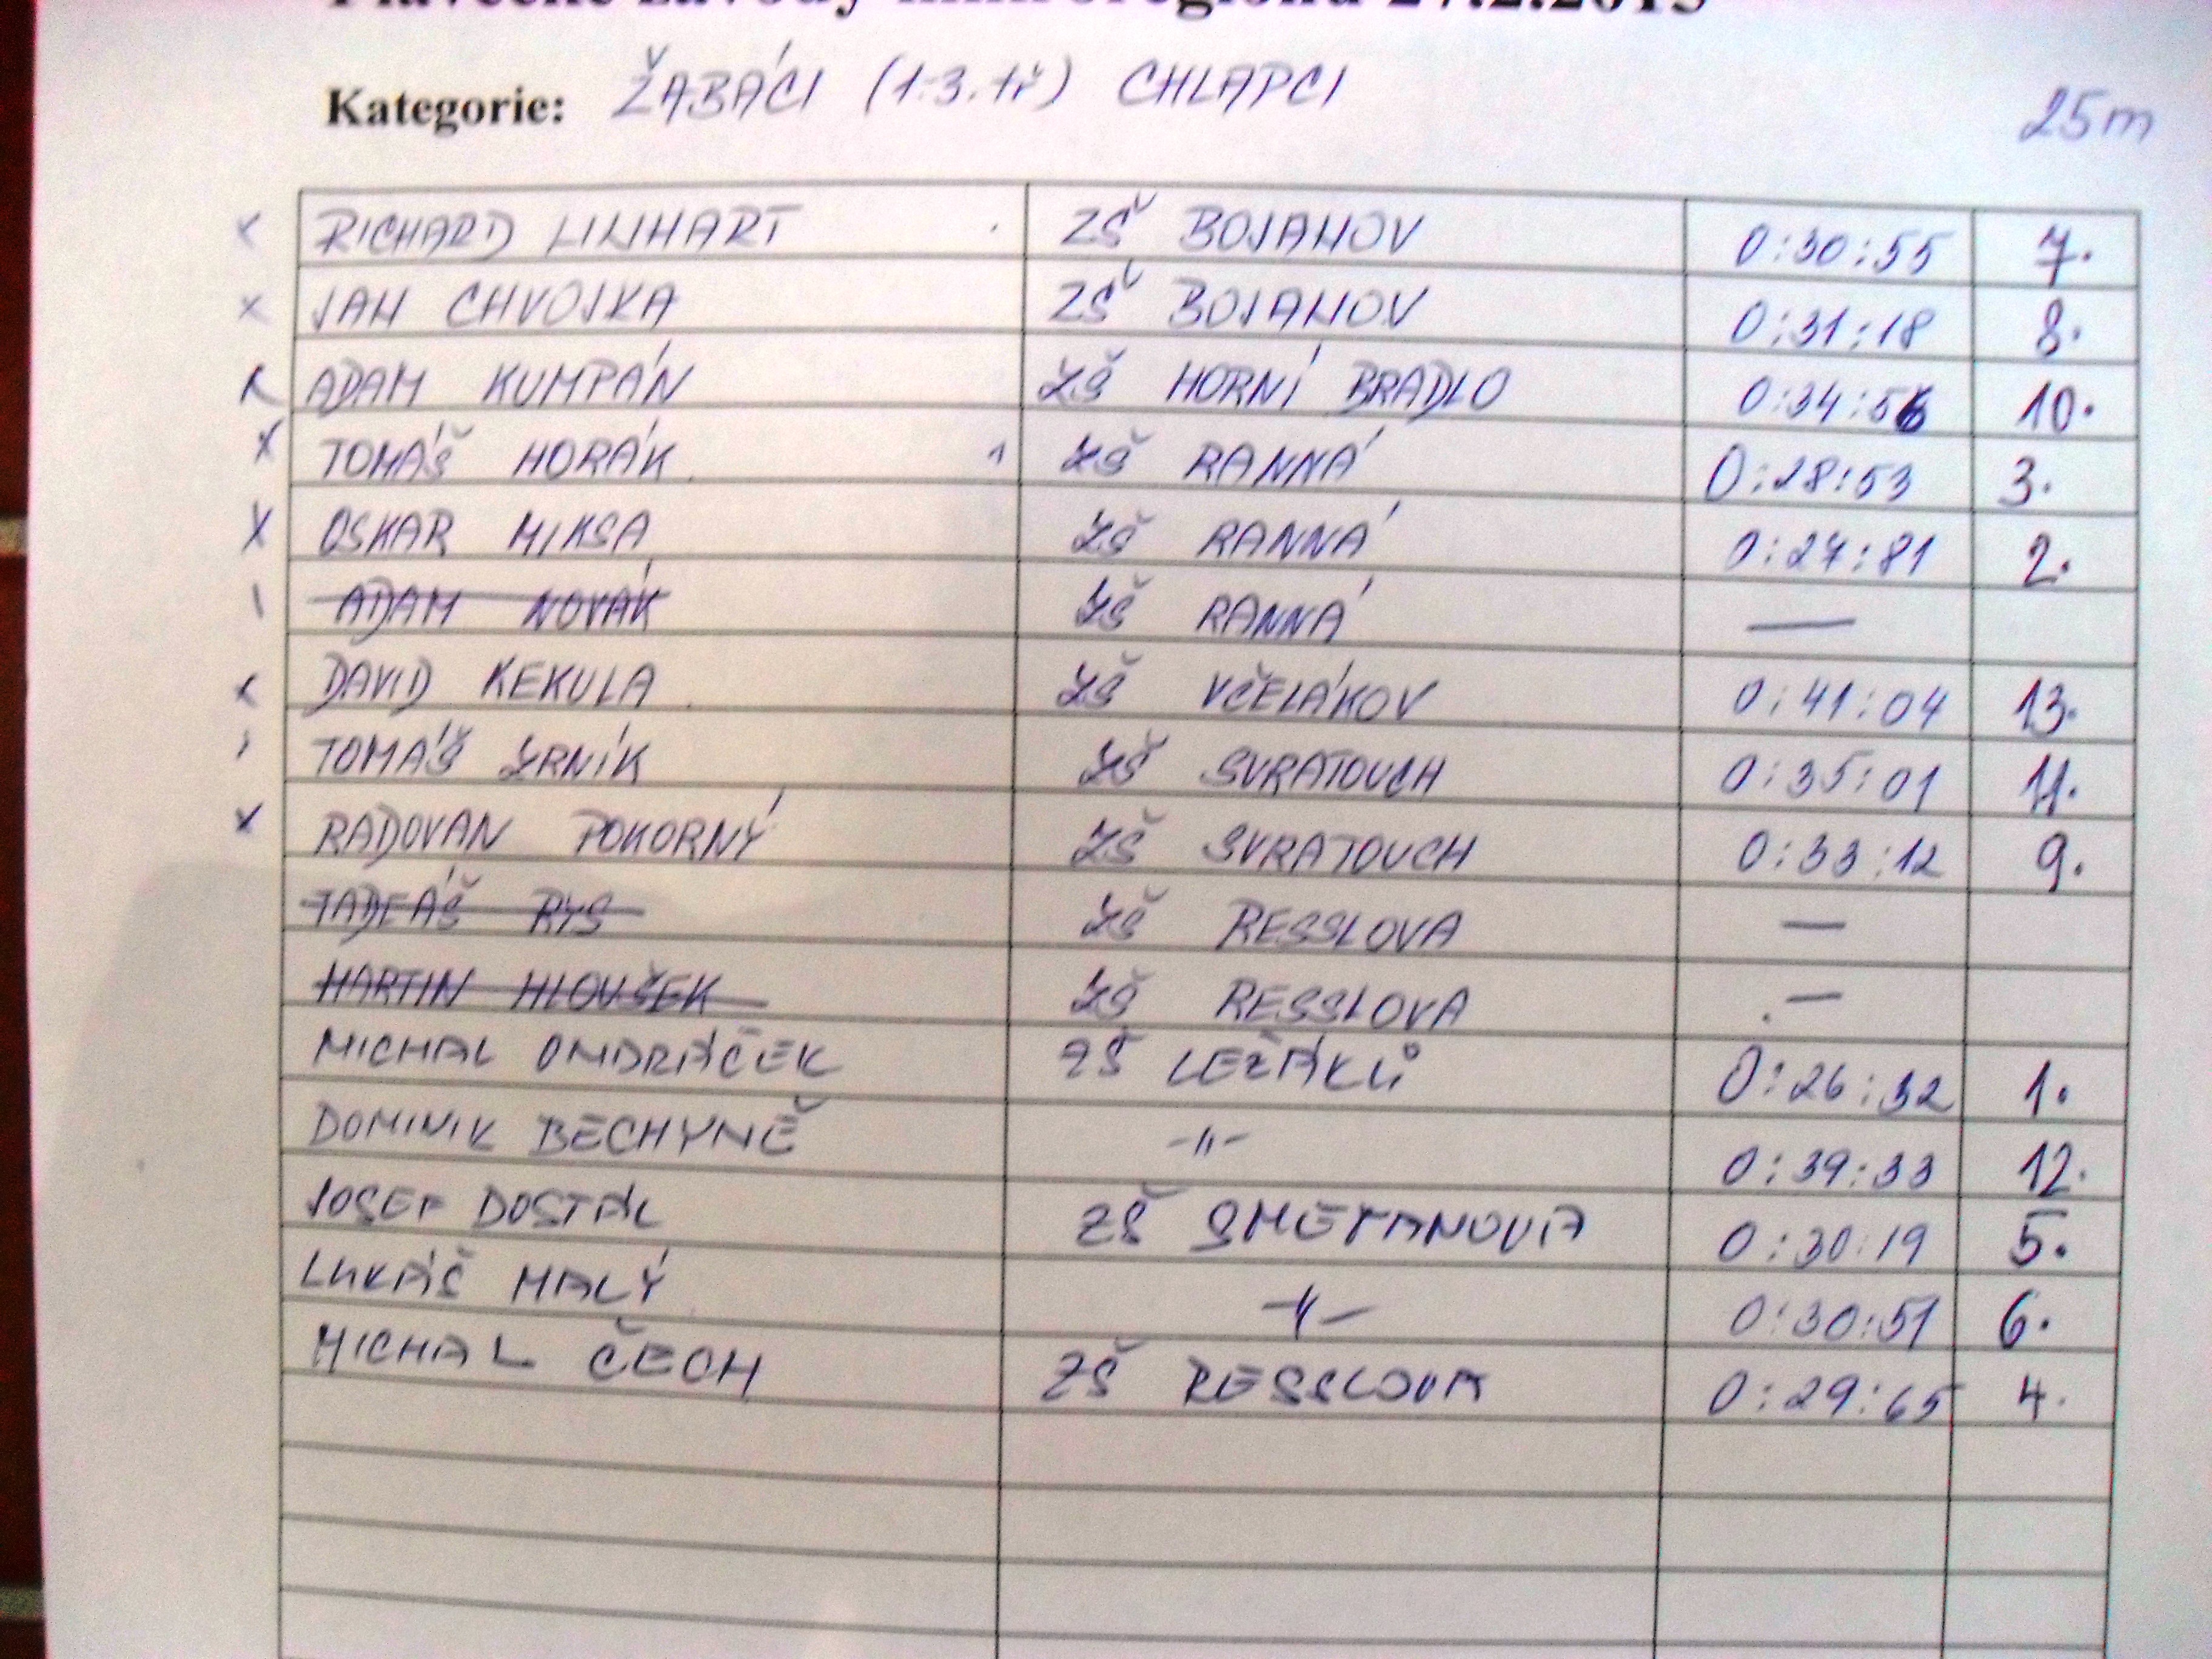 Plavecké závody mikroregionu 27.2.2013
Kategorie: ŽABÁCI (1.-3.tř) CHLAPCI 25m
x RICHARD LINHART ZŠ BOJANOV 0:30:55 7.
x JAN CHVOJKA ZŠ BOJANOV 0:31:18 8.
ADAM KUMPÁN ZŠ HORNÍ BRADLO 0:34:56 10.
x TOMÁŠ HORÁK ZŠ RANNÁ 0:28:53 3.
x OSKAR MIKSA ZŠ RANNÁ 0:27:81 2.
ADAM NOVÁK ZŠ RANNÁ —
x DAVID KEKULA ZŠ VČELÁKOV 0:41:04 13.
TOMÁŠ ZRNÍK ZŠ SVRATOUCH 0:35:01 11.
x RADOVAN POKORNÝ ZŠ SVRATOUCH 0:33:12 9.
TADEÁŠ RYS ZŠ RESSLOVA —
MARTIN HLOUŠEK ZŠ RESSLOVA —
MICHAL ONDRÁČEK ZŠ LEŽÁKŮ 0:26:32 1.
DOMINIK BECHYNĚ -"- 0:39:33 12.
JOSEF DOSTÁL ZŠ SMETANOVA 0:30:19 5.
LUKÁŠ MALÝ -"- 0:30:51 6.
MICHAL ČECH ZŠ RESSLOVA 0:29:65 4.